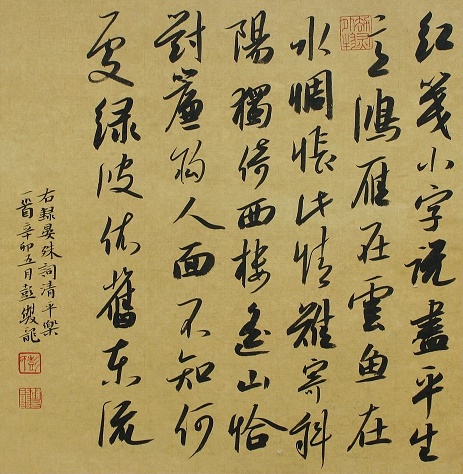 紅箋小字說盡平生
意鴻雁在雲魚在
水惆悵此情難寄斜
陽獨倚西樓遙山恰
對簾鈎人面不知何
處綠波依舊東流
右錄晏殊詞清平樂
一首辛卯五月彭雙龍